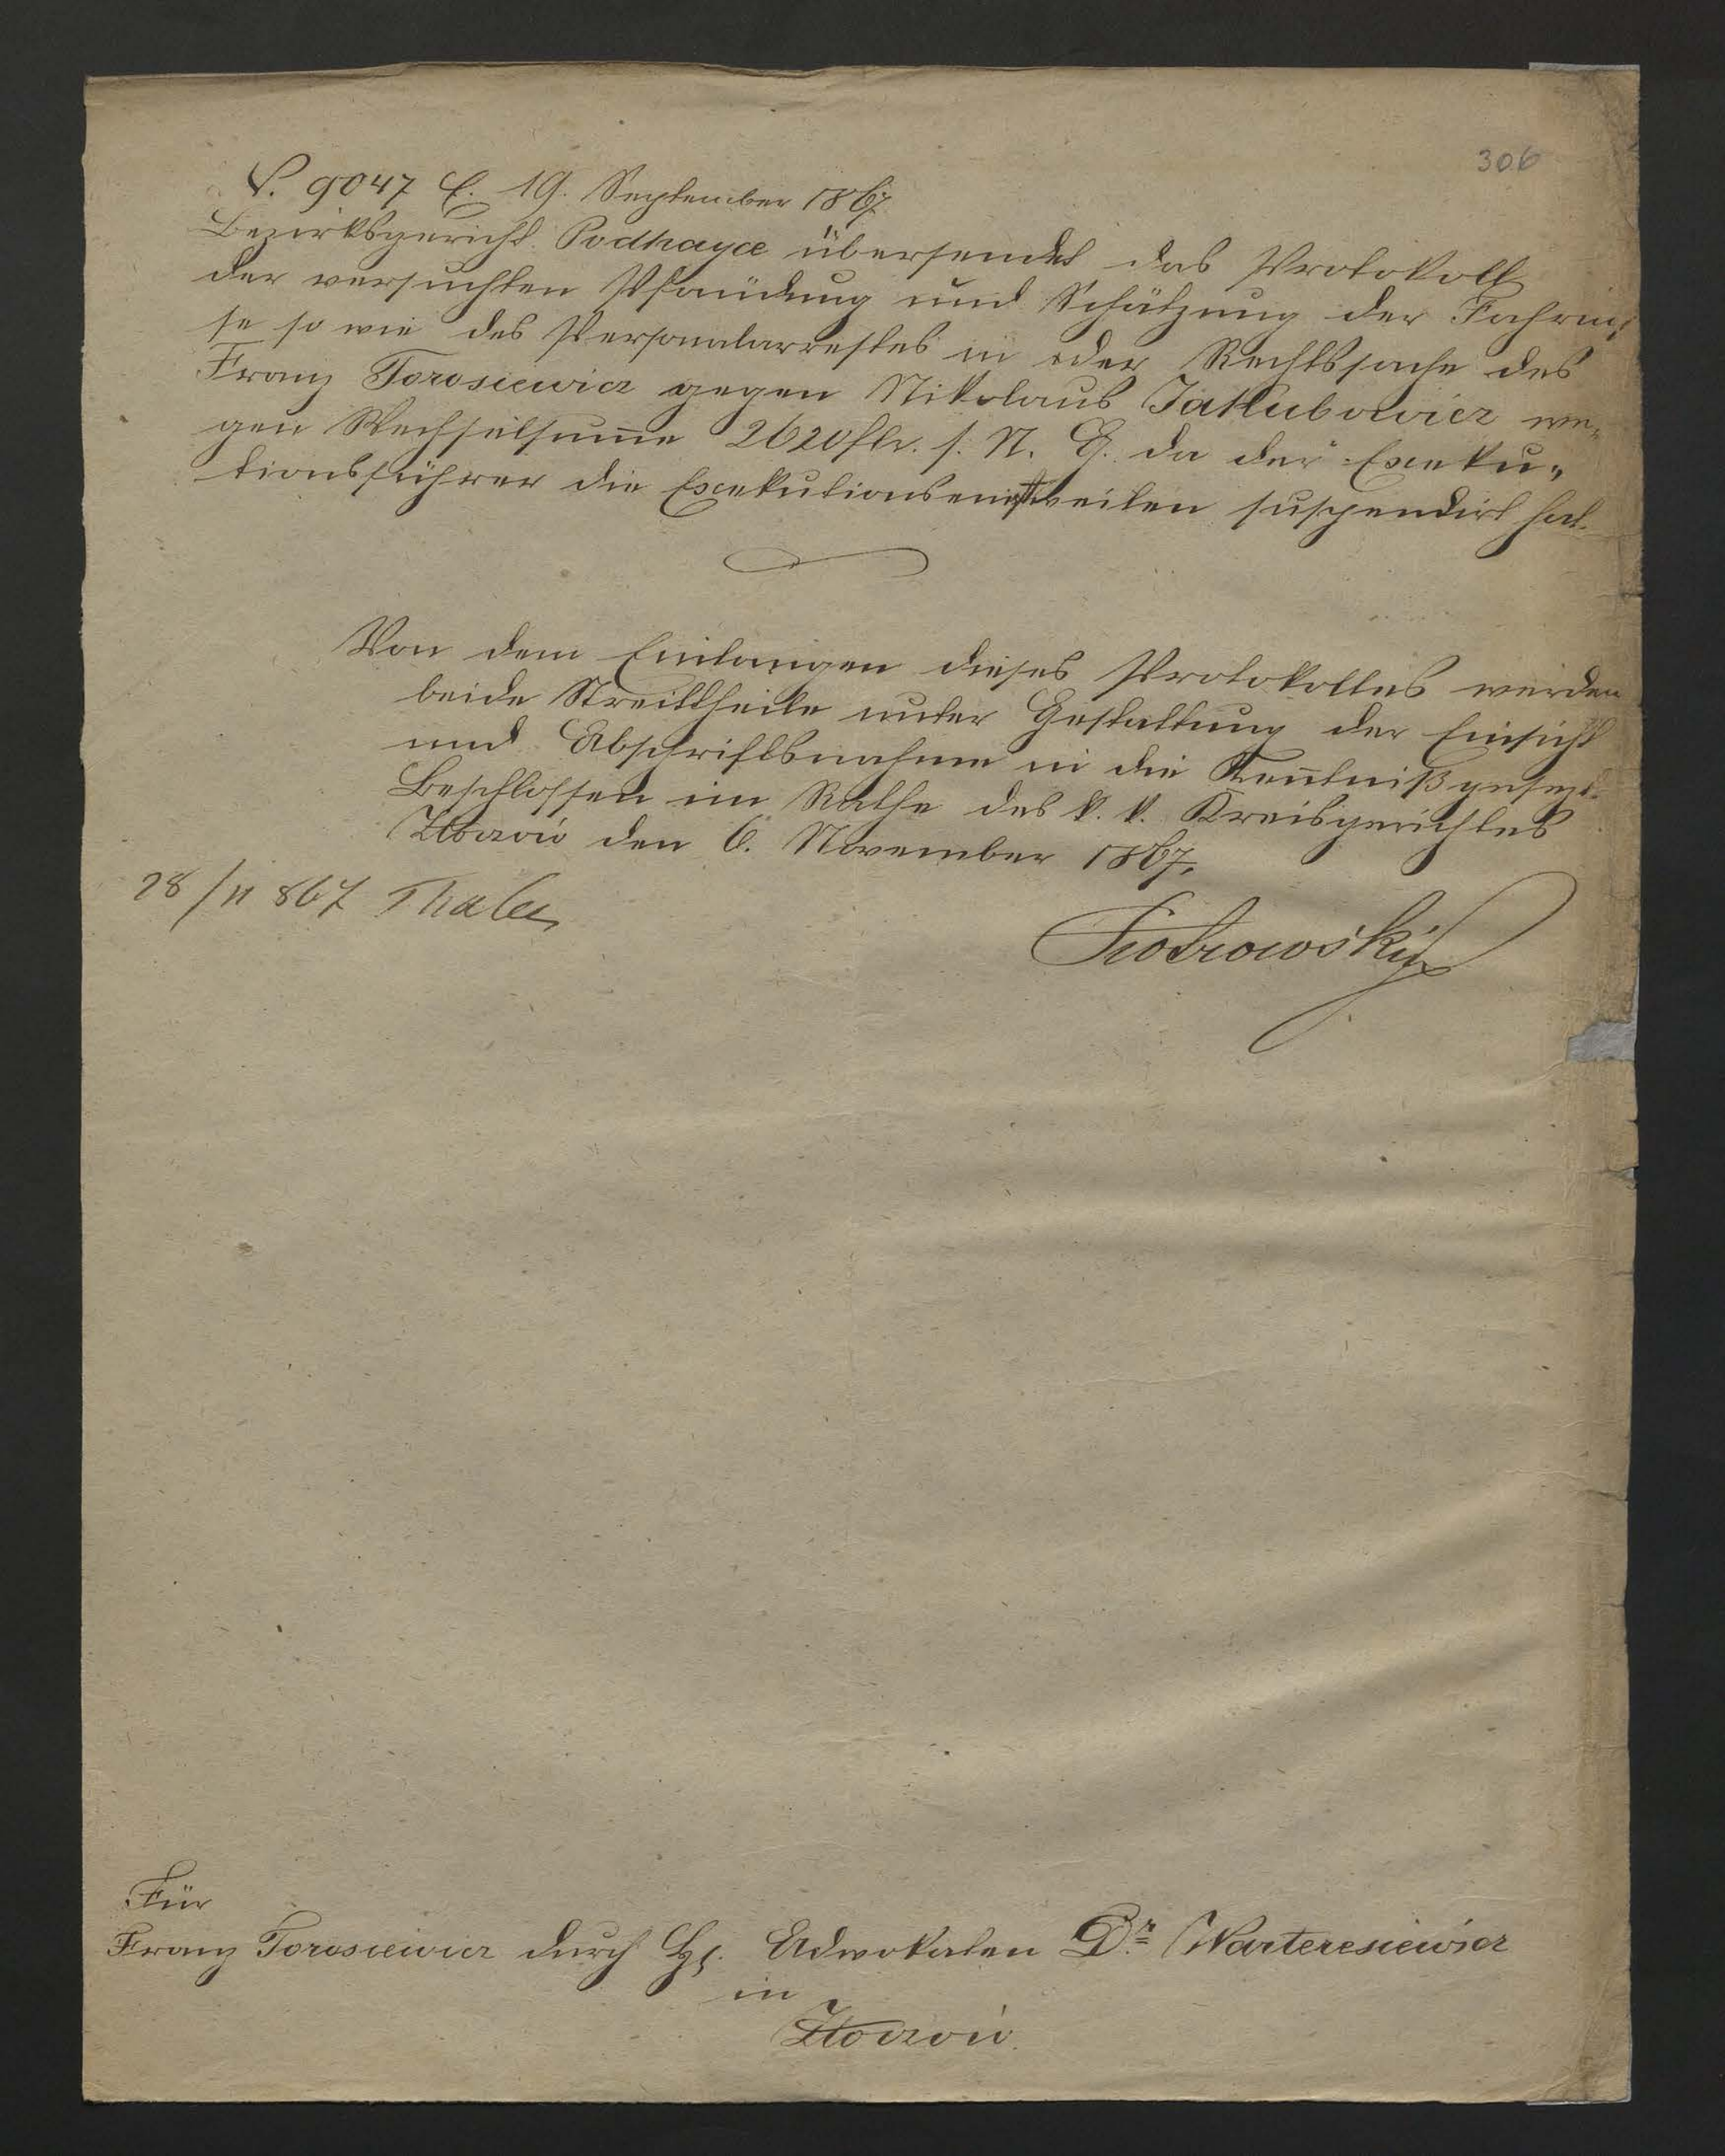 306
P. 9047 E. 19. September 1867
Bezirksgericht Podhayce übersendet das Protokoll
der versuchten Pfändung und Schätzung der Fahrnis¬
se so wie des Personalarrestes in der Rechtssache des
Franz Torosiewicz gegen Nikolaus Jakubowicz we¬
gen Wechselsum̅e 2620 flr. s. N. G. da der Exeku¬
tionsführer die Exekution einstweilen suspendirt hat.
Von dem Einlangen dieses Protokolles werden
beide Streittheile unter Gestattung der Einsicht
und Abschriftsnahme in die Ken̅tniß gesezt.
Beschlossen im Rathe des k. k. Kreisgerichtes
Złoczów den 6. November 1867.
28/11 867 Thaler
Piotrowski
Für
Franz Torosiewicz durch H. Advokaten Dr. Warteresiewicz
in
Złoczów.